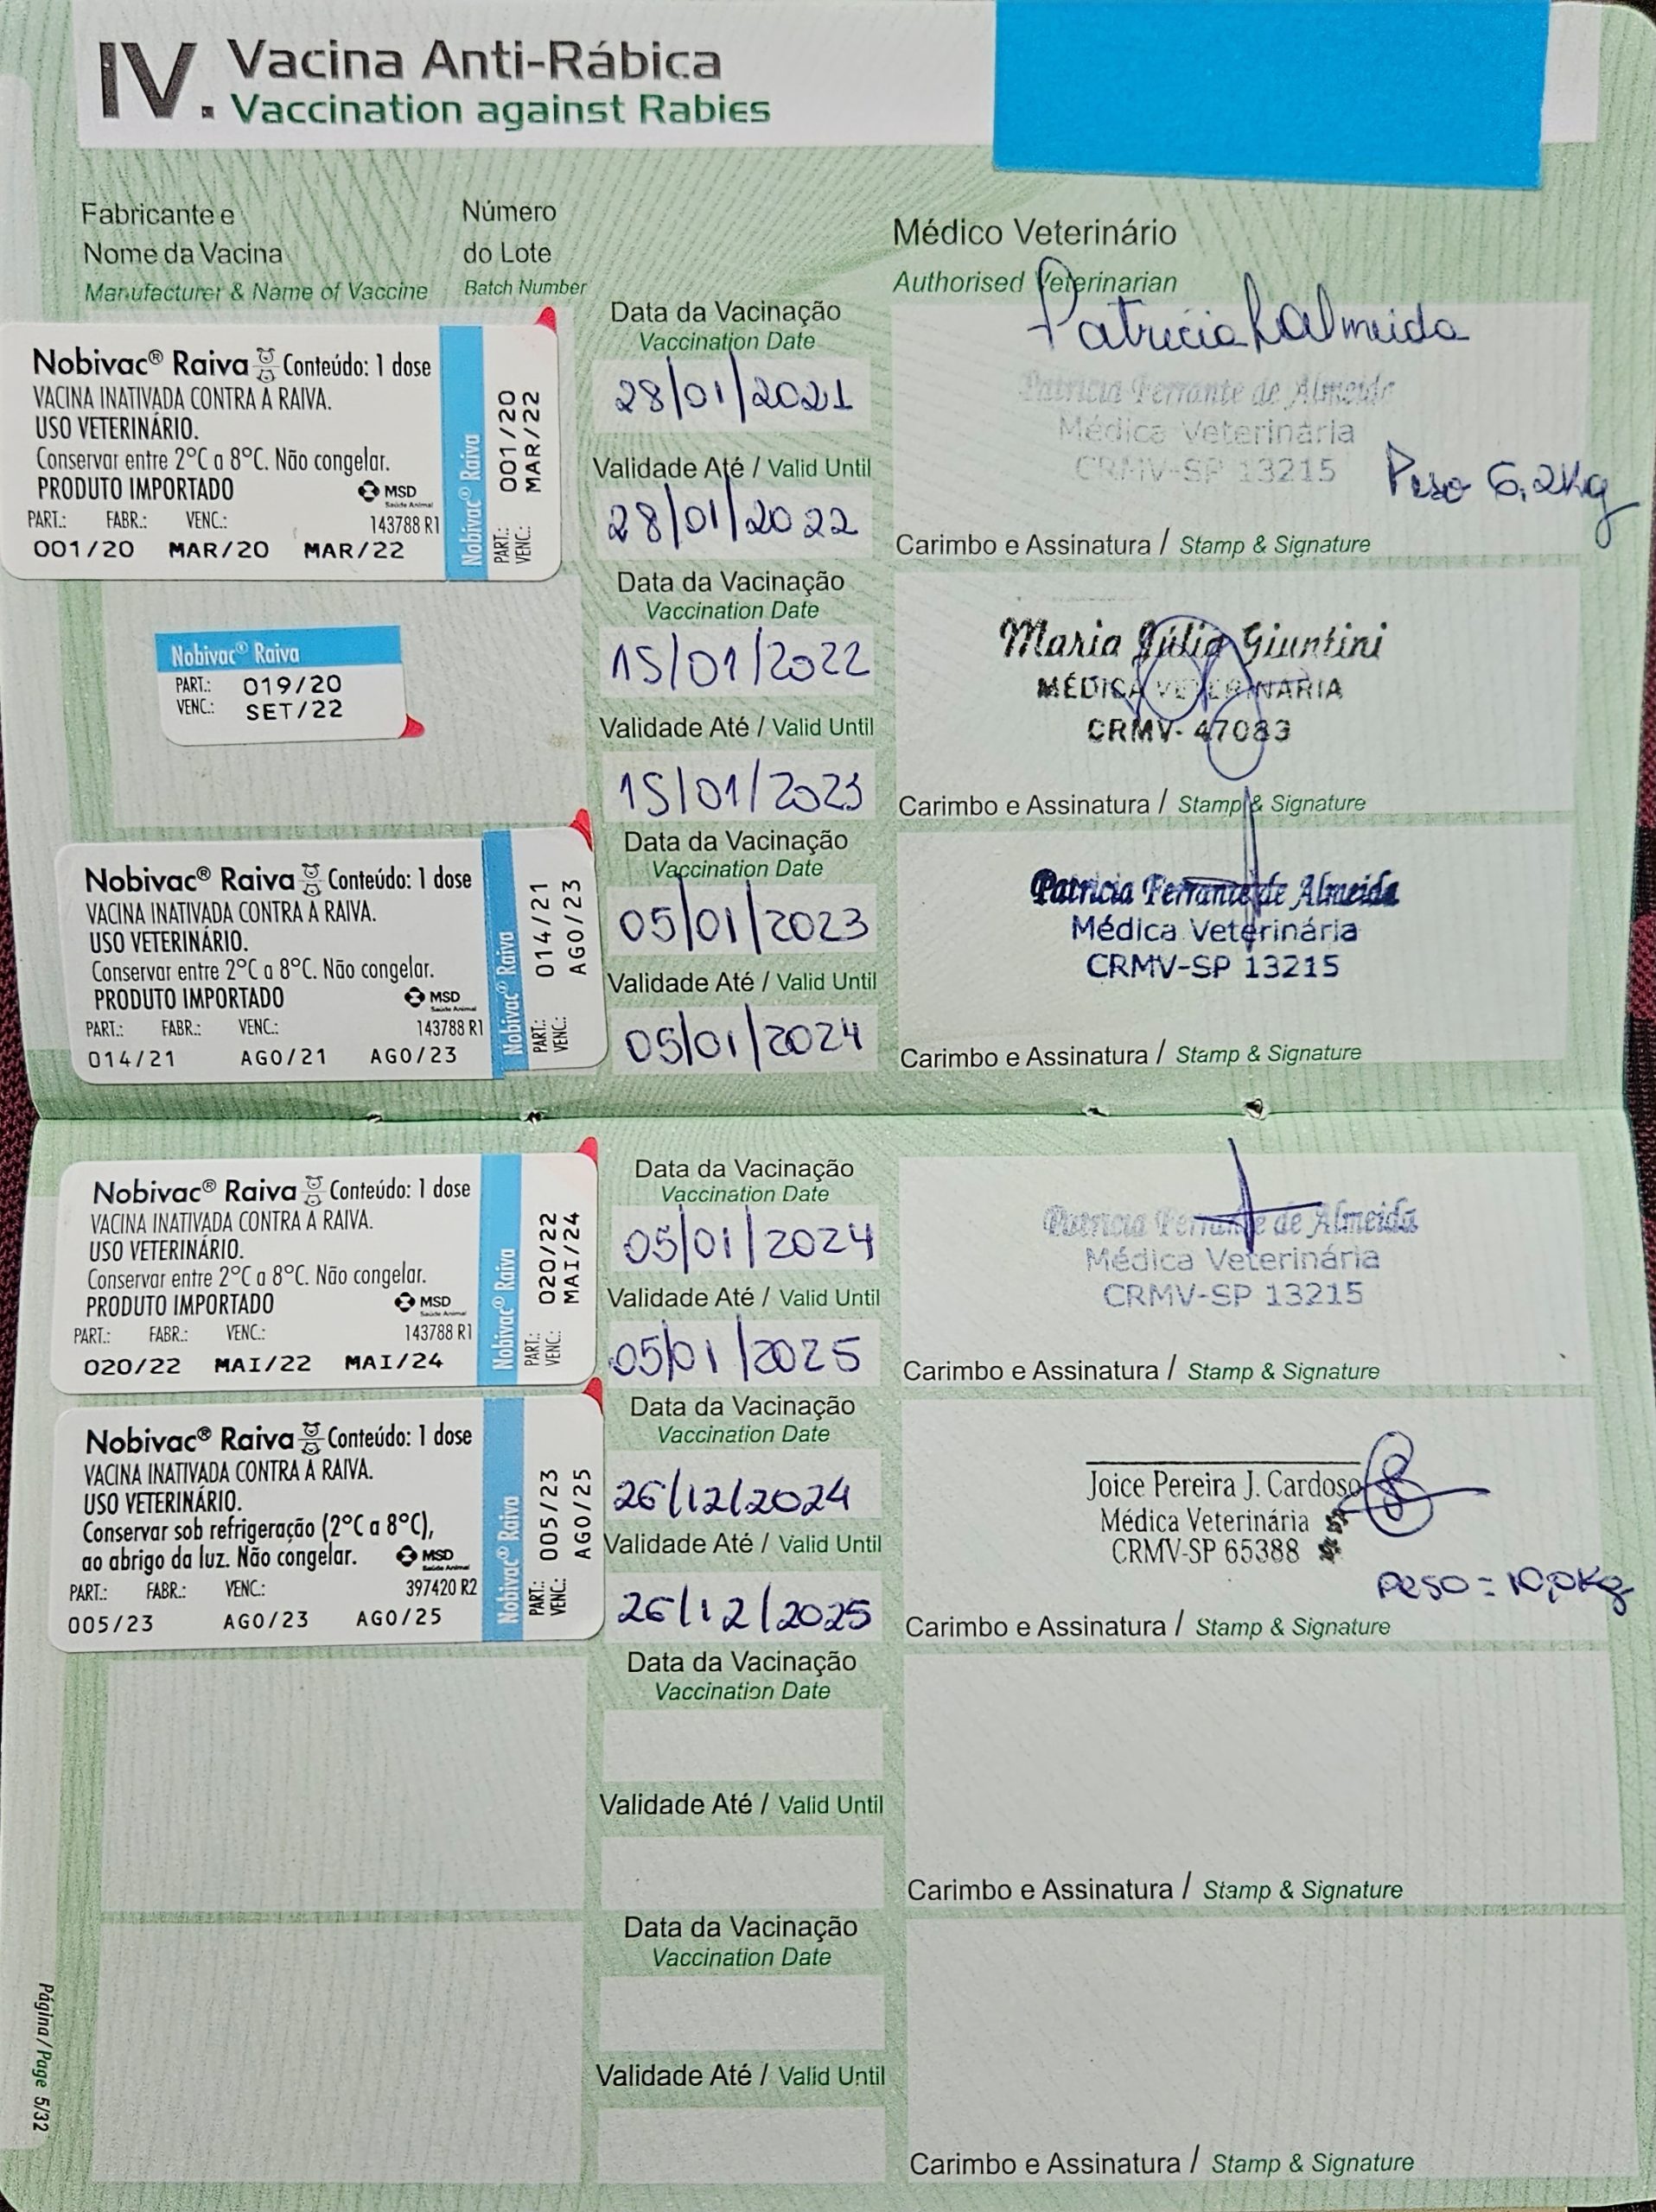 IV. Vacina Anti-Rábica
Vaccination against Rabies
Fabricante e
Nome da Vacina
Manufacturer & Name of Vaccine
Número
do Lote
Batch Number
Médico Veterinário
Authorised Veterinarian
Nobivac® Raiva Conteúdo: 1 dose
VACINA INATIVADA CONTRA A RAIVA.
USO VETERINÁRIO.
Conservar entre 2°C a 8°C. Não congelar.
PRODUTO IMPORTADO
MSD
Saúde Animal
PART.: FABR.: VENC.: 143788 R1
001/20 MAR/20 MAR/22
Nobivac® Raiva
PART.: 001/20
VENC.: MAR/22
Data da Vacinação
Vaccination Date
28/01/2021
Validade Até / Valid Until
28/01/2022
Patricia Almeida
Patricia Ferrante de Almeida
Médica Veterinária
CRMV-SP 13215
Peso 6,2Kg
Carimbo e Assinatura / Stamp & Signature
Nobivac® Raiva
PART.: 019/20
VENC.: SET/22
Data da Vacinação
Vaccination Date
15/01/2022
Validade Até / Valid Until
15/01/2023
Maria Júlia Giuntini
MÉDICA VETERINÁRIA
CRMV- 47083
Carimbo e Assinatura / Stamp & Signature
Nobivac® Raiva Conteúdo: 1 dose
VACINA INATIVADA CONTRA A RAIVA.
USO VETERINÁRIO.
Conservar entre 2°C a 8°C. Não congelar.
PRODUTO IMPORTADO
MSD
Saúde Animal
PART.: FABR.: VENC.: 143788 R1
014/21 AGO/21 AGO/23
Nobivac® Raiva
PART.: 014/21
VENC.: AGO/23
Data da Vacinação
Vaccination Date
05/01/2023
Validade Até / Valid Until
05/01/2024
Patricia Ferrante de Almeida
Médica Veterinária
CRMV-SP 13215
Carimbo e Assinatura / Stamp & Signature
Nobivac® Raiva Conteúdo: 1 dose
VACINA INATIVADA CONTRA A RAIVA.
USO VETERINÁRIO.
Conservar entre 2°C a 8°C. Não congelar.
PRODUTO IMPORTADO
MSD
Saúde Animal
PART.: FABR.: VENC.: 143788 R1
020/22 MAI/22 MAI/24
Nobivac® Raiva
PART.: 020/22
VENC.: MAI/24
Data da Vacinação
Vaccination Date
05/01/2024
Validade Até / Valid Until
05/01/2025
Patricia Ferrante de Almeida
Médica Veterinária
CRMV-SP 13215
Carimbo e Assinatura / Stamp & Signature
Nobivac® Raiva Conteúdo: 1 dose
VACINA INATIVADA CONTRA A RAIVA.
USO VETERINÁRIO.
Conservar sob refrigeração (2°C a 8°C),
ao abrigo da luz. Não congelar.
MSD
Saúde Animal
PART.: FABR.: VENC.: 397420 R2
005/23 AGO/23 AGO/25
Nobivac® Raiva
PART.: 005/23
VENC.: AGO/25
Data da Vacinação
Vaccination Date
26/12/2024
Validade Até / Valid Until
26/12/2025
Joice Pereira J. Cardoso
Médica Veterinária
CRMV-SP 65388
Peso = 10,0Kg
Carimbo e Assinatura / Stamp & Signature
Data da Vacinação
Vaccination Date
Validade Até / Valid Until
Carimbo e Assinatura / Stamp & Signature
Data da Vacinação
Vaccination Date
Validade Até / Valid Until
Carimbo e Assinatura / Stamp & Signature
Página / Page 5/32